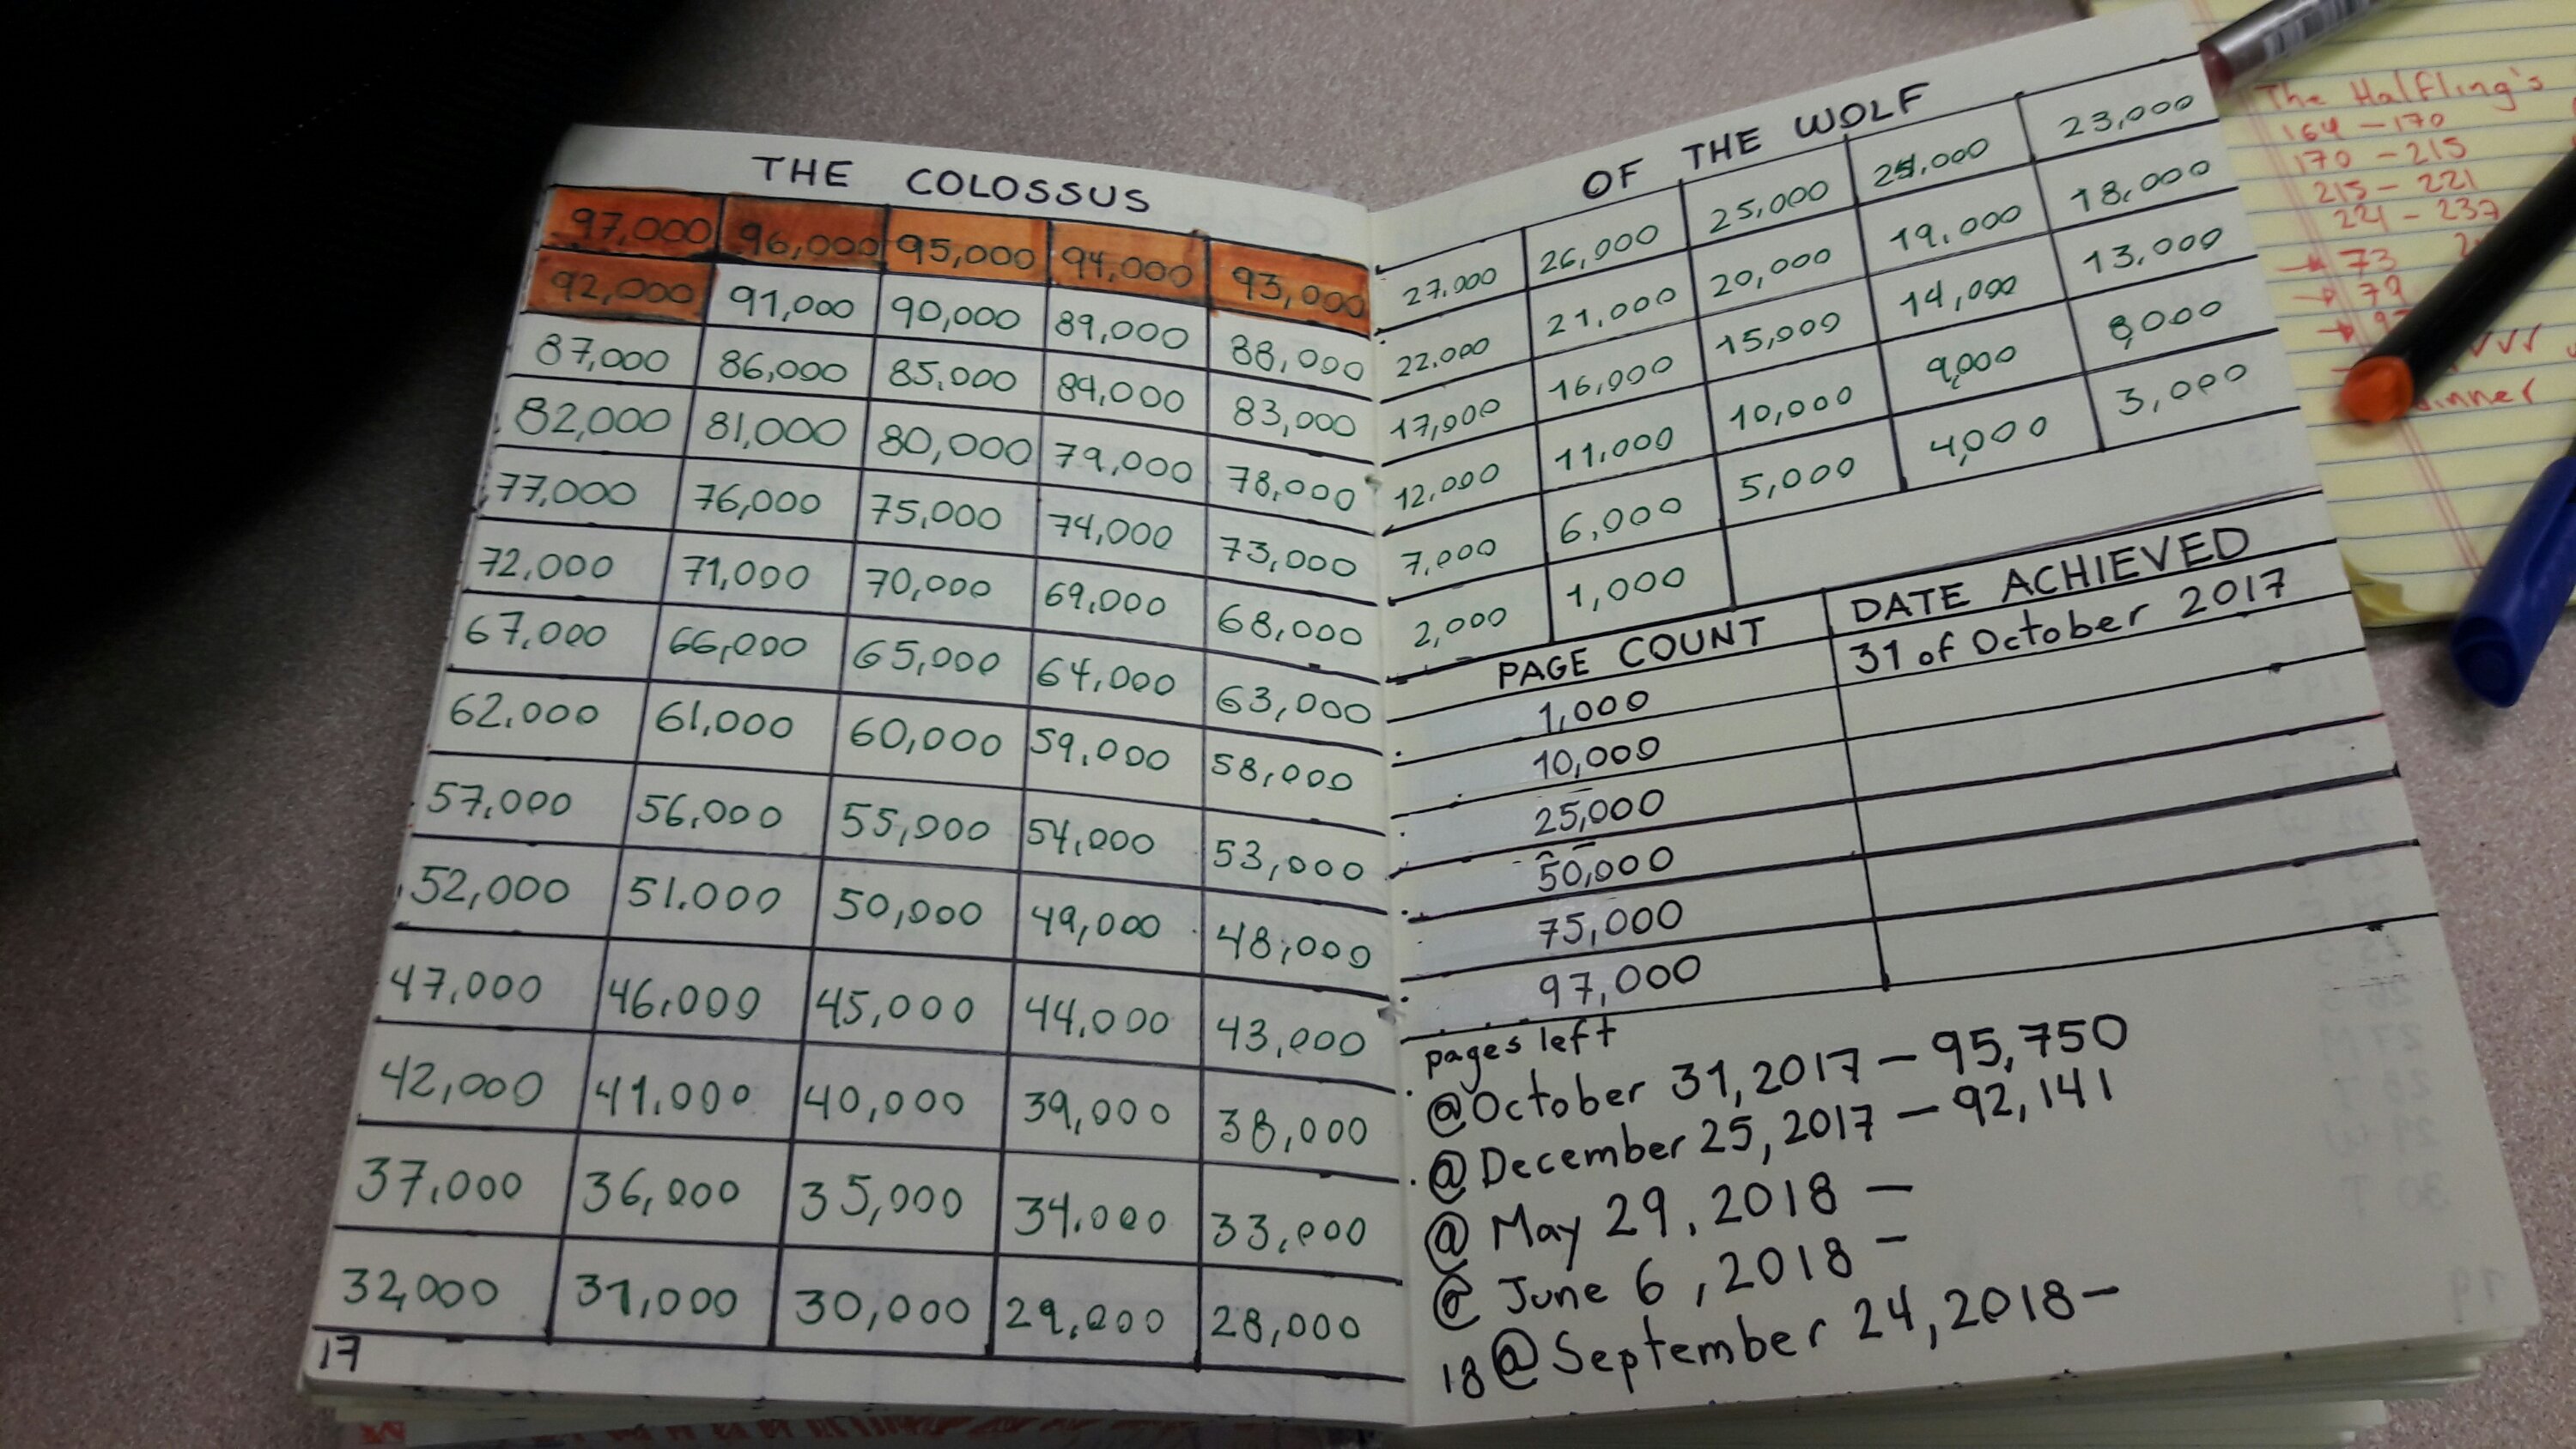 THE COLOSSUS
97,000 96,000 95,000 94,000 93,000
92,000 91,000 90,000 89,000 88,000
87,000 86,000 85,000 84,000 83,000
82,000 81,000 80,000 79,000 78,000
77,000 76,000 75,000 74,000 73,000
72,000 71,000 70,000 69,000 68,000
67,000 66,000 65,000 64,000 63,000
62,000 61,000 60,000 59,000 58,000
57,000 56,000 55,000 54,000 53,000
52,000 51,000 50,000 49,000 48,000
47,000 46,000 45,000 44,000 43,000
42,000 41,000 40,000 39,000 38,000
37,000 36,000 35,000 34,000 33,000
32,000 31,000 30,000 29,000 28,000
17
OF THE WOLF
27,000 26,000 25,000 24,000 23,000
22,000 21,000 20,000 19,000 18,000
17,000 16,000 15,000 14,000 13,000
12,000 11,000 10,000 9,000 8,000
7,000 6,000 5,000 4,000 3,000
2,000 1,000
PAGE COUNT DATE ACHIEVED
1,000 31 of October 2017
10,000
25,000
50,000
75,000
97,000
pages left
@October 31, 2017 - 95,750
@December 25, 2017 - 92,141
@ May 29, 2018 -
@ June 6, 2018 -
18 @September 24, 2018 -
The Halfling's
164 - 170
170 - 215
215 - 221
221 - 237
→ 73
→ 79
dinner